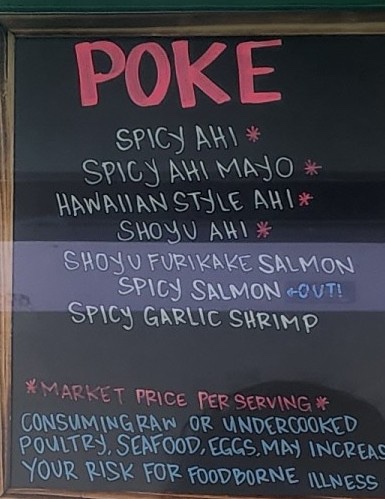 POKE
SPICY AHI *
SPICY AHI MAYO *
HAWAIIAN STYLE AHI *
SHOYU AHI *
SHOYU FURIKAKE SALMON
SPICY SALMON ←OUT!
SPICY GARLIC SHRIMP
*MARKET PRICE PER SERVING*
CONSUMING RAW OR UNDERCOOKED
POULTRY, SEAFOOD, EGGS, MAY INCREAS
YOUR RISK FOR FOODBORNE ILLNESS